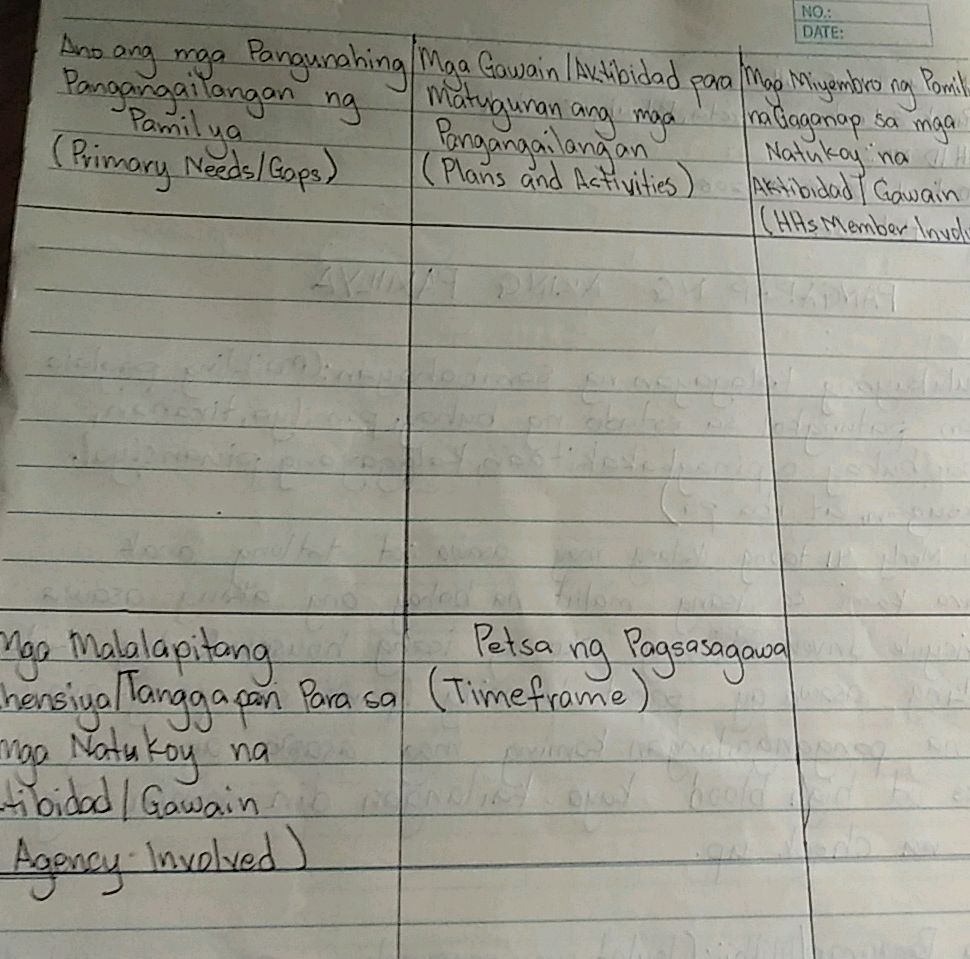 NO.:
DATE:
Ano ang mga Pangunahing
Pangangailangan ng
Pamilya
(Primary Needs/Gaps)
Mga Gawain/Aktibidad para
Matugunan ang mga
Pangangailangan
(Plans and Activities)
Mga Miyembro ng Pamil
na Gaganap sa mga
Natukoy na
Aktibidad/Gawain
(HHs Member Invol
Mga Malalapitang
hensiya/Tanggapan Para sa
mga Natukoy na
tibidad/Gawain
Agency Involved)
Petsa ng Pagsasagawa
(Timeframe)